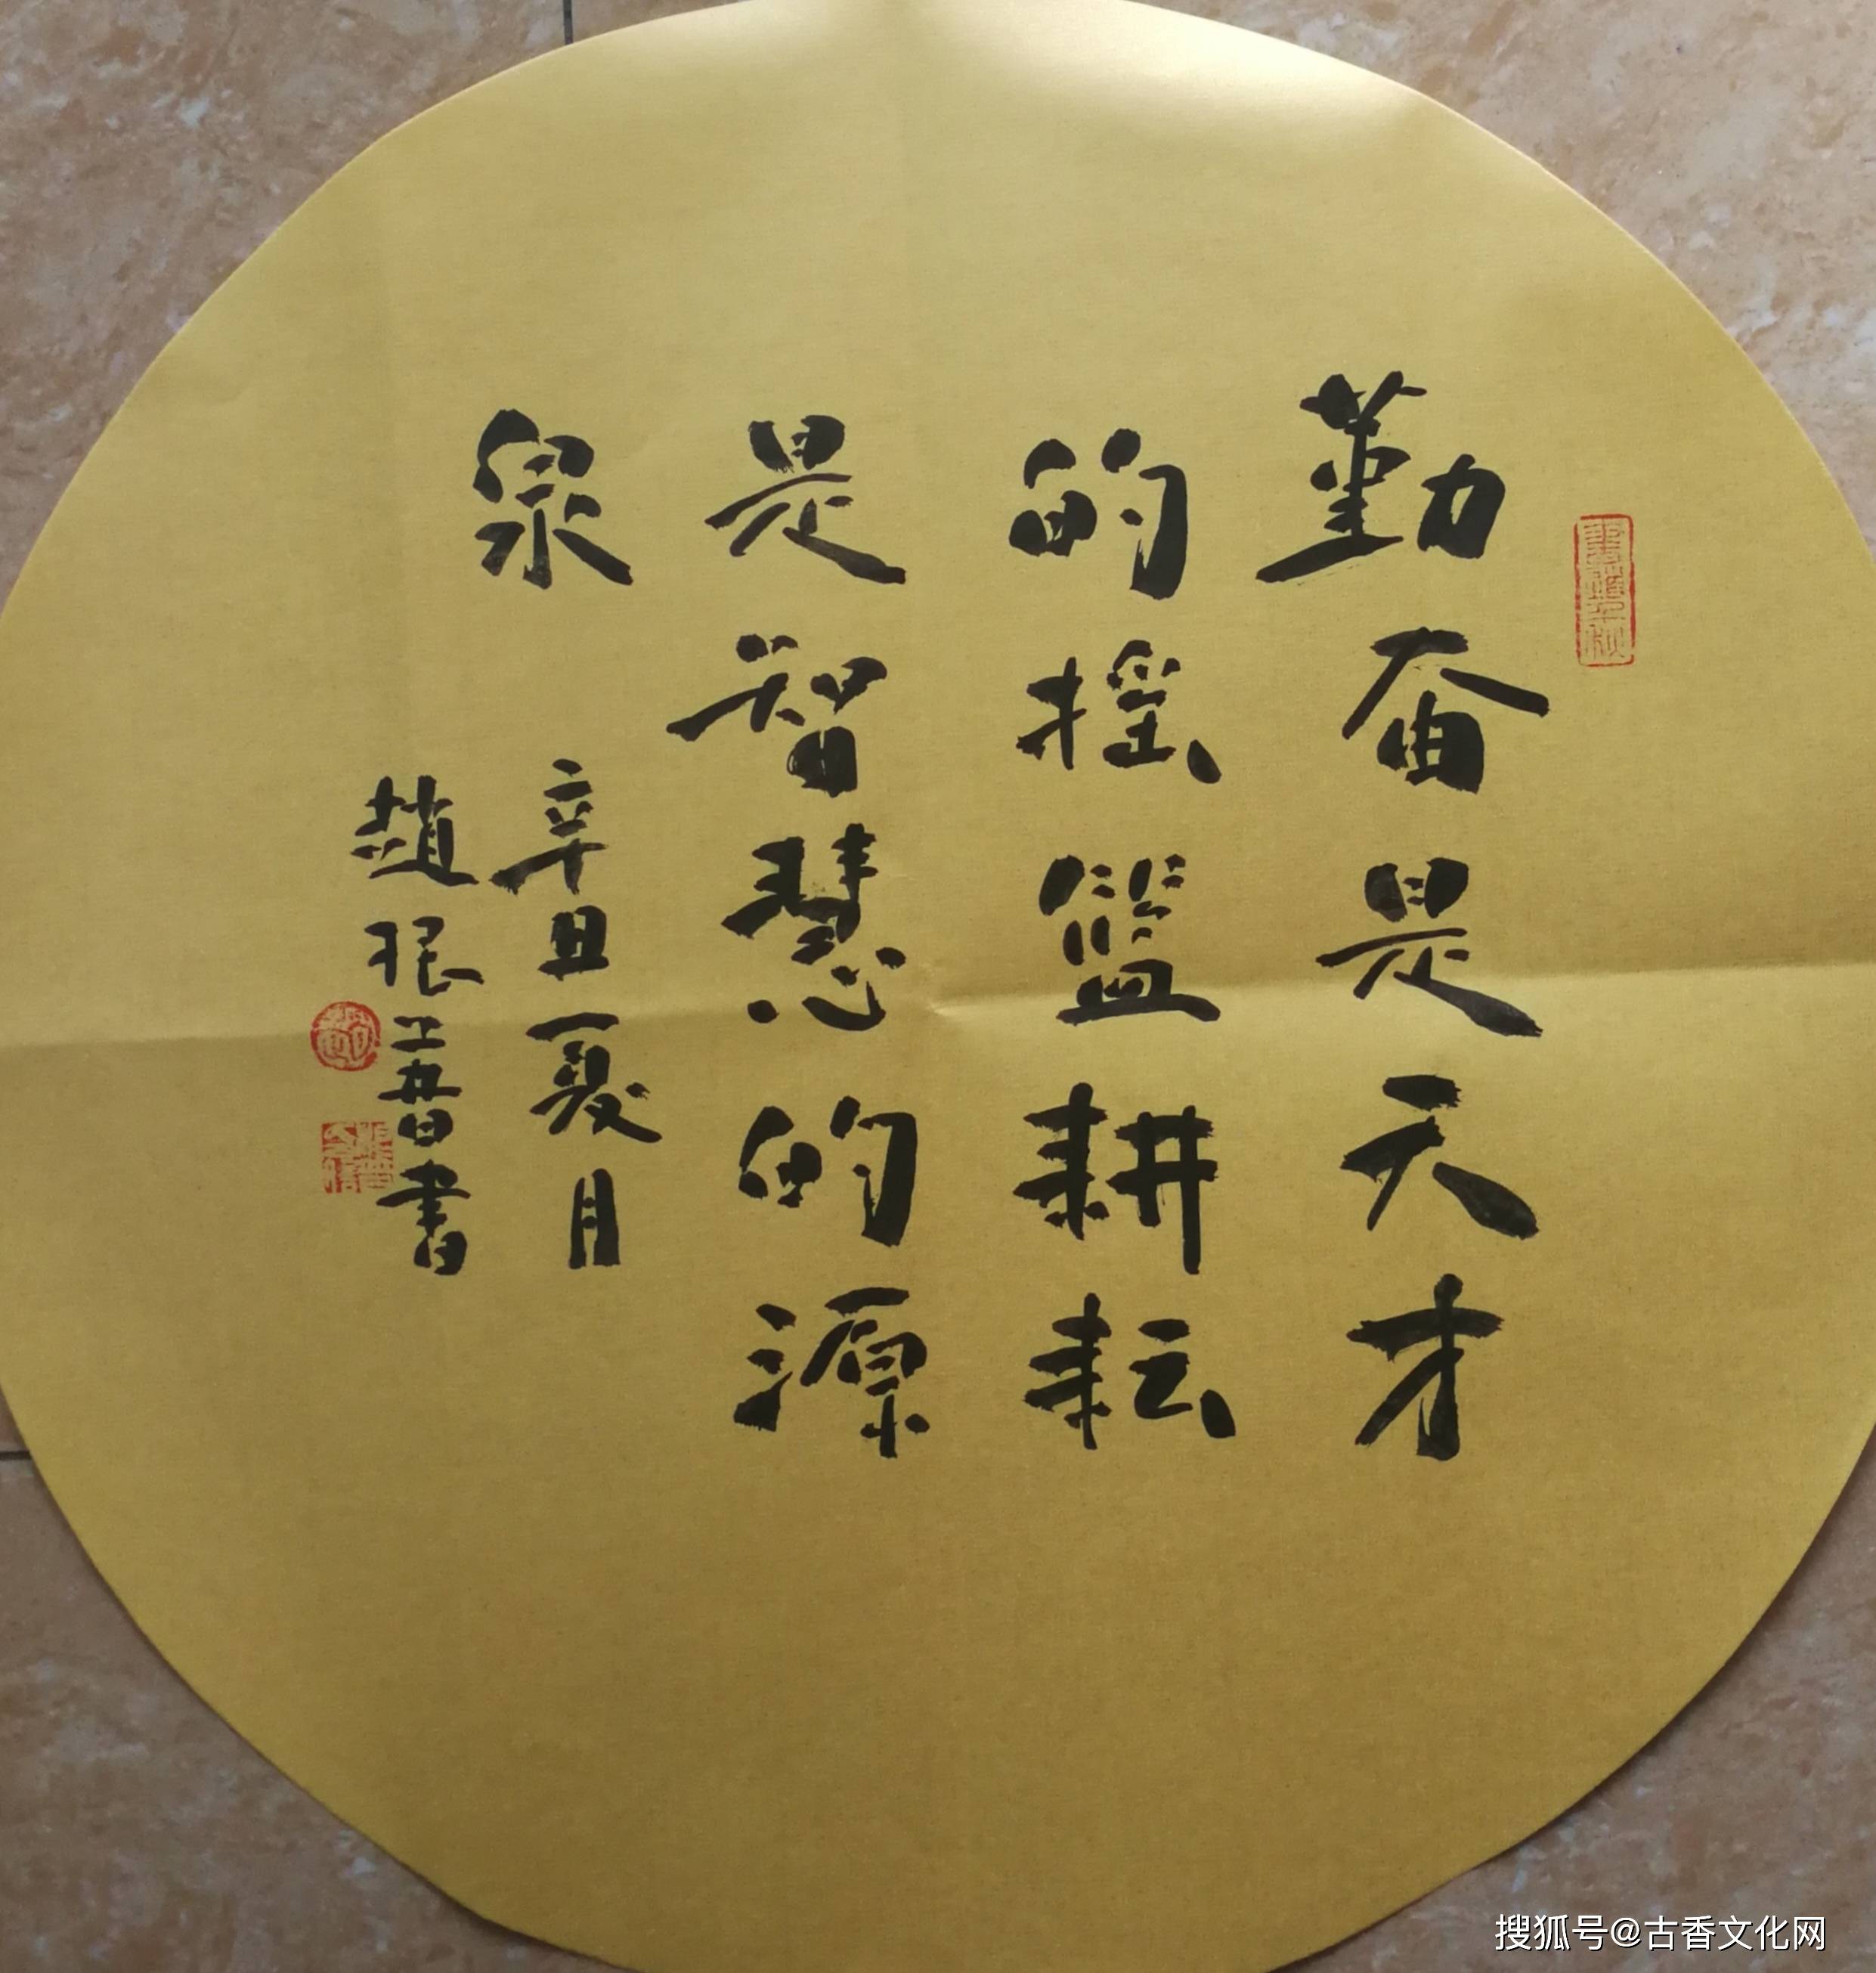 勤奋是天才
的摇篮耕耘
是智慧的源
泉
辛丑夏月
趙珉普書
搜狐号@古香文化网